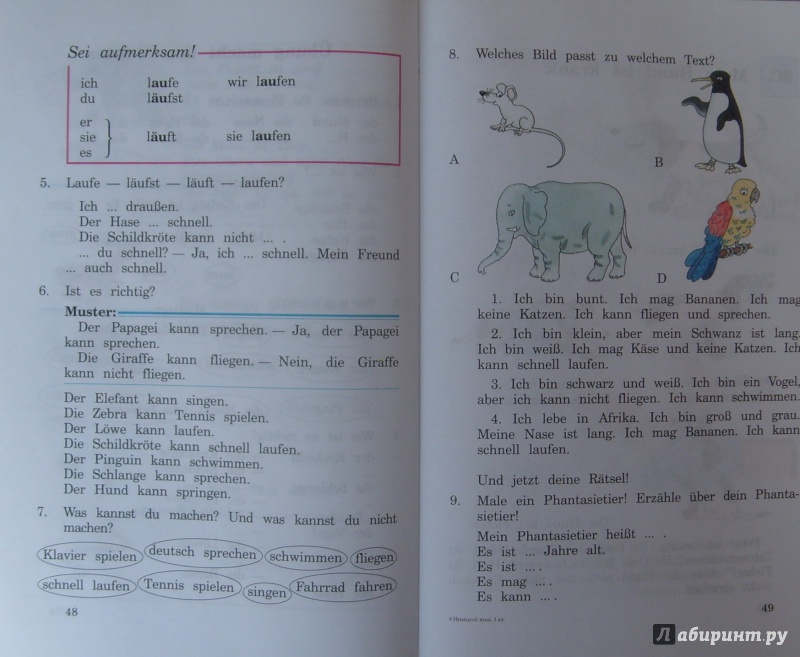 Sei aufmerksam!
ich laufe wir laufen
du läufst
er
sie läuft sie laufen
es
5. Laufe — läufst — läuft — laufen?
Ich ... draußen.
Der Hase ... schnell.
Die Schildkröte kann nicht ... .
... du schnell? — Ja, ich ... schnell. Mein Freund
... auch schnell.
6. Ist es richtig?
Muster:
Der Papagei kann sprechen. — Ja, der Papagei
kann sprechen.
Die Giraffe kann fliegen. — Nein, die Giraffe
kann nicht fliegen.
Der Elefant kann singen.
Die Zebra kann Tennis spielen.
Der Löwe kann laufen.
Die Schildkröte kann schnell laufen.
Der Pinguin kann schwimmen.
Die Schlange kann sprechen.
Der Hund kann springen.
7. Was kannst du machen? Und was kannst du nicht
machen?
Klavier spielen deutsch sprechen schwimmen fliegen
schnell laufen Tennis spielen singen Fahrrad fahren
48
8. Welches Bild passt zu welchem Text?
A B
C D
1. Ich bin bunt. Ich mag Bananen. Ich mag
keine Katzen. Ich kann fliegen und sprechen.
2. Ich bin klein, aber mein Schwanz ist lang.
Ich bin weiß. Ich mag Käse und keine Katzen. Ich
kann schnell laufen.
3. Ich bin schwarz und weiß. Ich bin ein Vogel,
aber ich kann nicht fliegen. Ich kann schwimmen.
4. Ich lebe in Afrika. Ich bin groß und grau.
Meine Nase ist lang. Ich mag Bananen. Ich kann
schnell laufen.
Und jetzt deine Rätsel!
9. Male ein Phantasietier! Erzähle über dein Phanta-
sietier!
Mein Phantasietier heißt ... .
Es ist ... Jahre alt.
Es ist ... .
Es mag ... .
Es kann ... .
49
4 Немецкий язык. 3 кл.
Лабиринт.ру